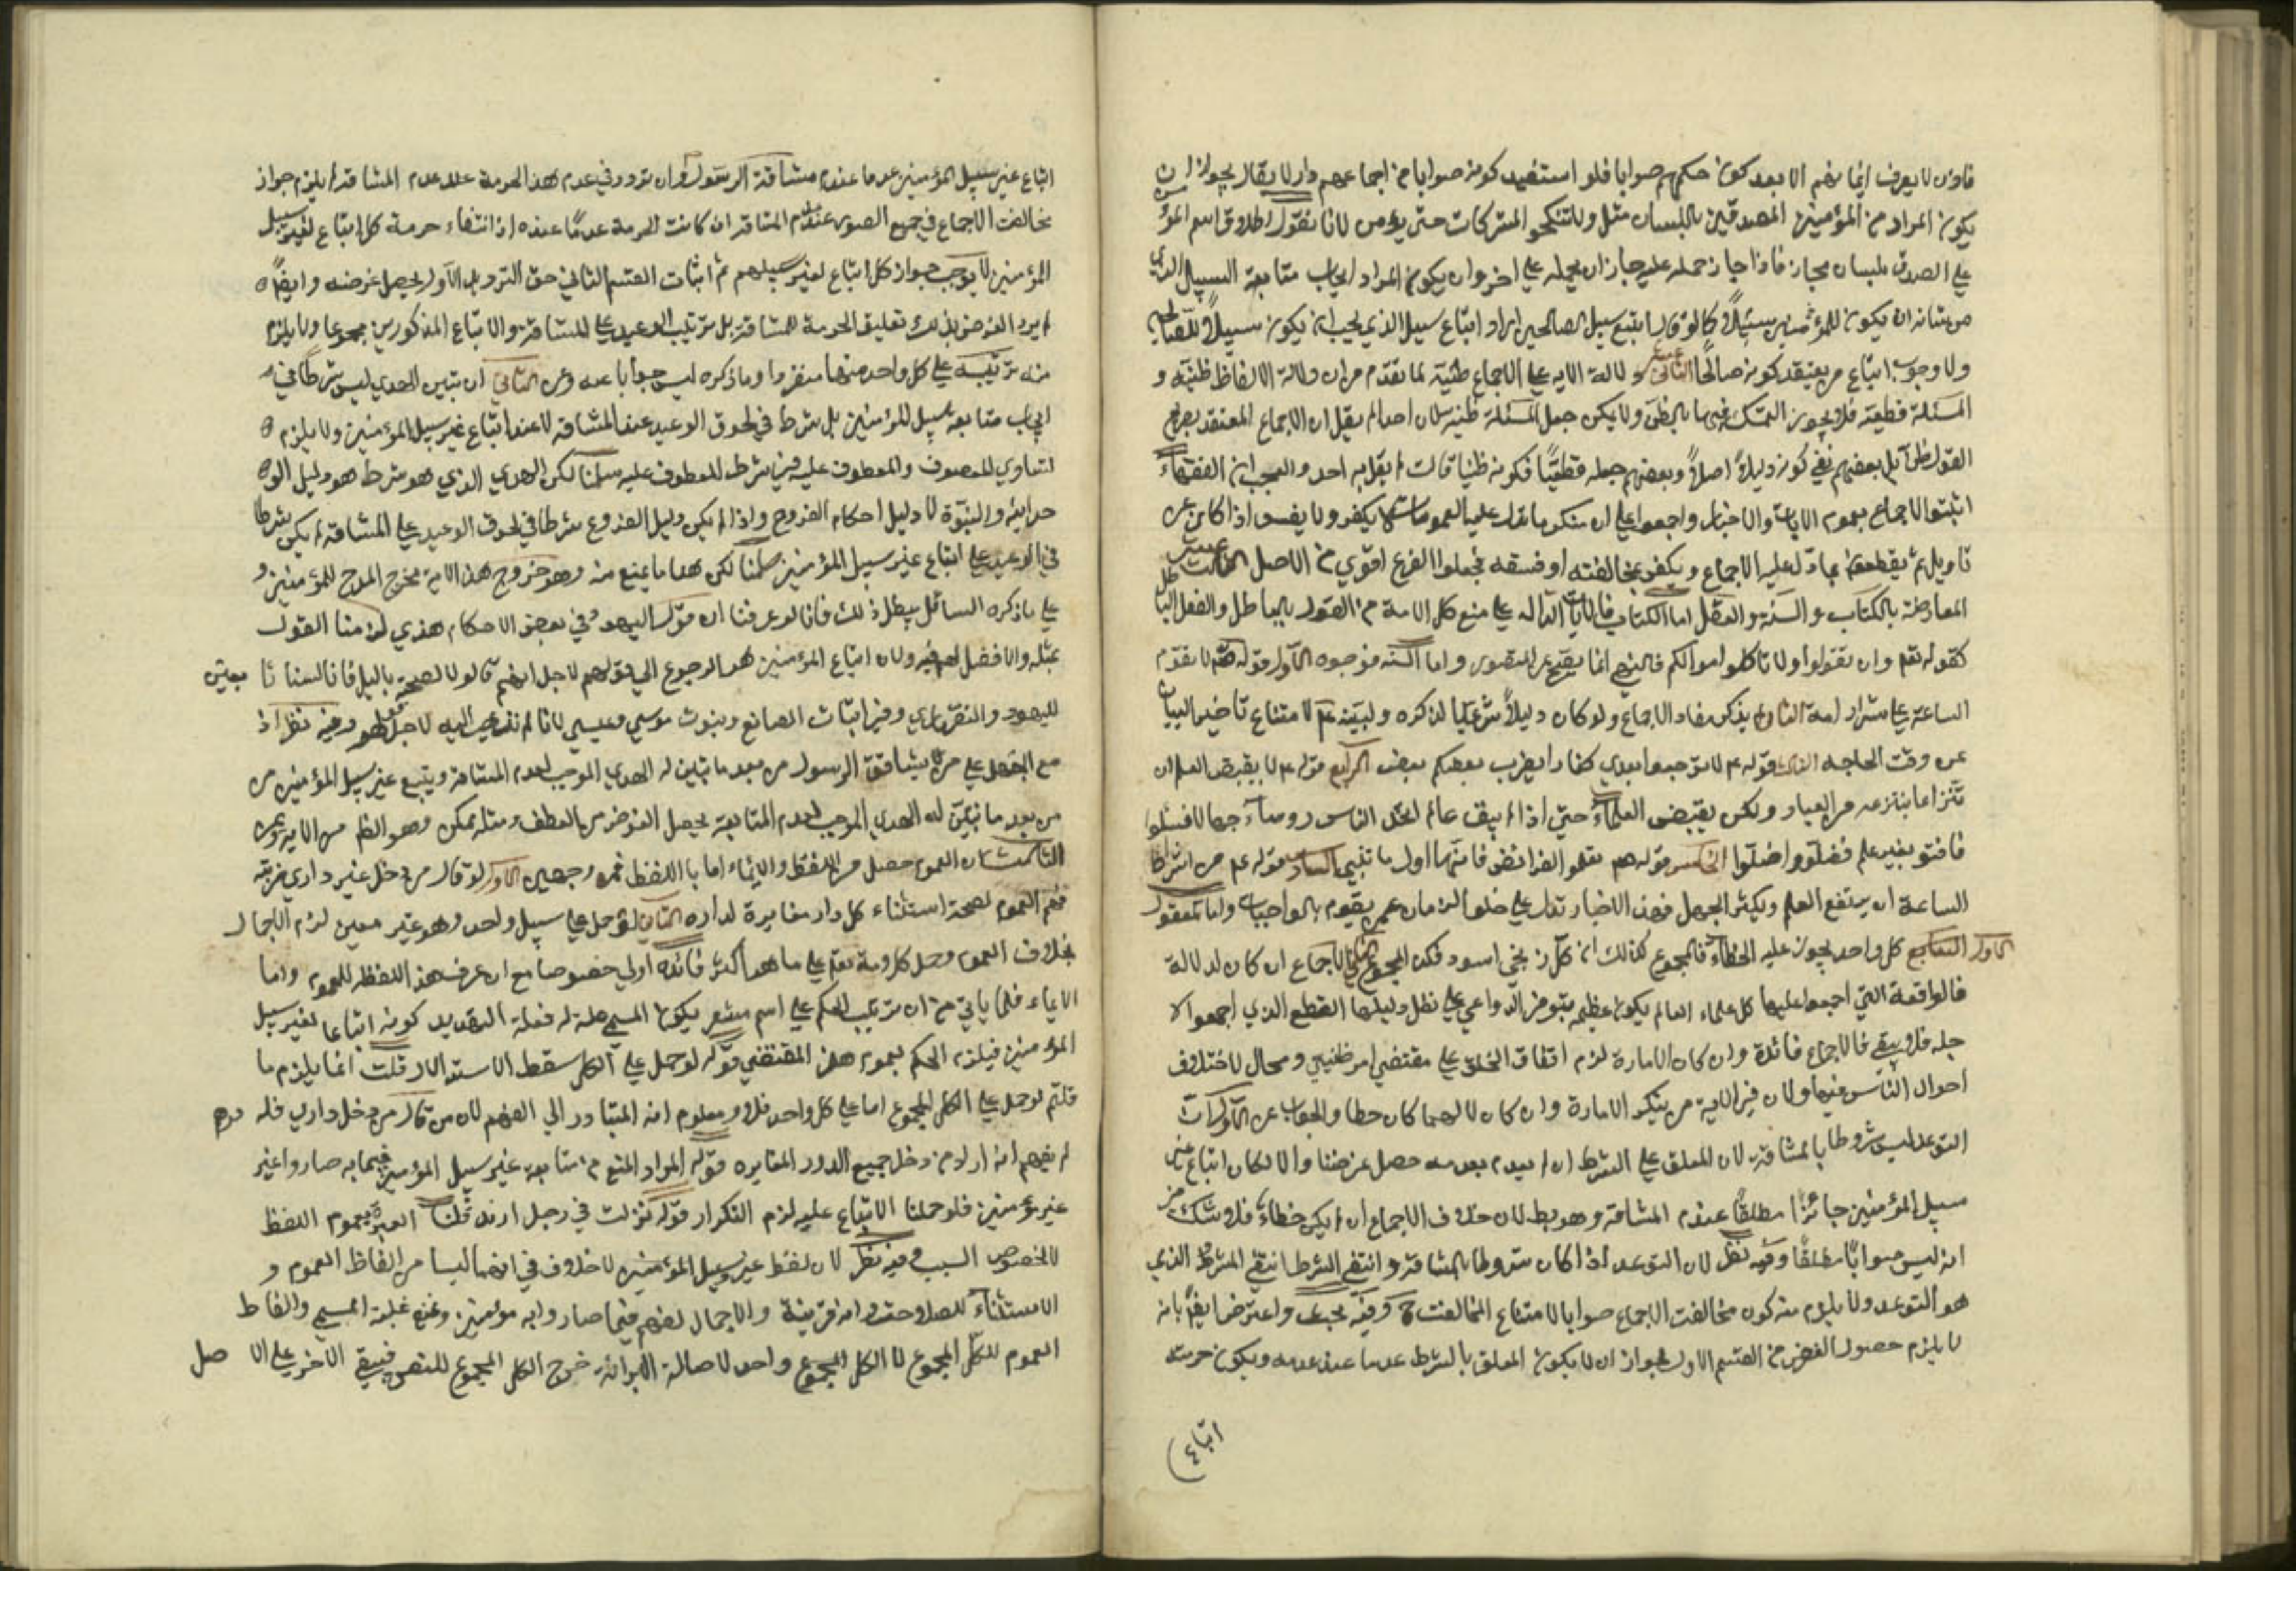 فاذن لا يعرف ايمانهم الا بعد كون حكمهم صوابا فلو استفيد كونه صوابا من اجماعهم دار لا يقال يجوز ان
يكون المراد من المؤمنين المصدقين باللسان مثل ولا تنكحو المشركات حتى يؤمن لانا نقول اطلاق اسم المؤ
على الصدق بلسان مجاز فاذا جاز حمله عليه جاز ان يحمله على اخر وان يكون المراد ايجاب متابعة السبيل الذي
من شانه ان يكون للمؤمنين سبيلا كما لو قال اتبع سبيل الصالحين اراد اتباع سبيل الذي يجب ان يكون سبيلا للصالحين
ولا وجوب اتباع من يعتقد كونه صالحا الثاني عشر دلالة الاية على الاجماع ظنية لما تقدم من ان دلالة الالفاظ ظنية و
المسئلة قطعية فلا يجوز التمسك فيها بالظن ولا يمكن جعل المسئلة ظنية لان احدا لم يقل ان الاجماع المعتقد بصريح
القول ظني بل بعضهم نفي كونه دليلا اصلا وبعضهم جعله قطعيا فكونه ظنيا قالت لم يقل به احد والعجب ان الفقهاء
اثبتوا الاجماع بعموم الايات والاخبار واجمعوا على ان منكر ما تدل عليه العمومات لا يكفر ولا يفسق اذا كان عن
تاويل ثم يقطعون بما دل عليه الاجماع ويكفر بمخالفته او فسقه فجعلوا الفرع اقوي من الاصل الثالث عشر
المعارضة بالكتاب والسنة والعقل اما الكتاب فالايات الدالة على منع كل الامة من القول بالباطل والفعل الباطل
كقوله تعم وان تقولوا ولا تاكلوا اموالكم فالنهي انما يصح عن المتصور واما السنة فوجوه الاول قوله عم لا تقوم
الساعة على شرار امة الثاني يذكر معاذ الاجماع ولو كان دليلا شرعيا لذكره ولبينه عم لامتناع تاخير البيان
عن وقت الحاجة الثالث قوله عم لا ترجعوا بعدي كفارا يضرب بعضكم بعض الرابع قوله عم لا يقبض العلم ان
تنزاعا ينتزعه من العباد ولكن يقبض العلماء حتي اذا لم يبق عالم اتخذ الناس روساء جهالا فسئلوا
فافتو بغير علم فضلوا واضلوا الخامس قوله عم تعلمو الفرائض فانها اول ما تنسي السادس قوله عم من اشراط
الساعة ان يرتفع العلم ويكثر الجهل فهذه الاخبار تدل على خلو الزمان عمن يقوم بالواجبات واما المعقول
الاول السابع كل واحد يجوز عليه الخطاء فالمجموع كذلك ان كل زنجي اسود فكذا المجموع الثاني الاجماع ان كان لدلالة
فالواقعة التي اجمعوا عليها كل علماء العالم يكون عظيمة يتوفر الدواعي على نقل دليلها القطع الذي اجمعوا لا
جله فلا يبقي فالاجماع فائدة وان كان الامارة لزم اتفاق الخلق على مقتضي امر ظني ومحال لاختلاف
احوال الناس فيها ولان في الامة من ينكر الامارة وان كان لا لهما كان خطا والجواب عن الاول ان
التوعد ليس مشروطا بالمشاقة لان المعلق على الشرط ان لم يعدم بعدمه حصل غرضنا والا لكان اتباع غير
سبيل المؤمنين جائزا مطلقا عند عدم المشاقة وهو بط لان خلاف الاجماع ان لم يكن خطاء فلا شك في
انه ليس صوابا مطلقا وفيه نظر لان التوعد اذا كان مشروطا بالمشاقة وانتفي الشرط انتفي المشروط الذي
هو التوعد ولا يلزم منه كون مخالفة الاجماع صوابا لامتناع المخالفة ح وفيه بحث واعترض ايضا بانه
لا يلزم حصول الغرض من القسم الاول لجواز ان لا يكون المعلق بالشرط عدما عند عدمه ويكون حرمة
اتباع
اتباع غير سبيل المؤمنين عدما عند عدم مشاقة الرسول وان تردد في عدم هذه الحرمة عند عدم المشاقة لم يلزم جواز
مخالفة الاجماع في جميع الصور عند عدم المشاقة ان كانت الحرمة عدما عنده اذ انتفاء حرمة كل اتباع لغير سبيل
المؤمنين لا يوجب جواز كل اتباع لغير سبيلهم ثم اثبات القسم الثاني حق الترو بل الاول يحصل غرضه وايضا
لم يرد الغرض بذلك تعليق الحرمة للمشاقة بل ترتيب الوعيد على المشاقة والاتباع المذكورين مجموعا ولا يلزم
منه ترتيبه على كل واحد منهما منفردا وما ذكره ليس جوابا عنه وعن الثاني ان تبين الهدي ليس شرطا في
ايجاب متابعة سبيل المؤمنين بل شرط في لحوق الوعيد عند المشاقة لا عند اتباع غير سبيل المؤمنين ولا يلزم
تساوي المعطوف والمعطوف عليه في شرط المعطوف عليه سلمنا لكن الهدي الذي هو شرط هو دليل الو
حدانية والنبوة لا دليل احكام الفروع واذا لم يكن دليل الفروع شرطا في لحوق الوعيد على المشاقة لم يكن شرطا
في الوعيد على اتباع غير سبيل المؤمنين سلمنا لكن هنا ما يمنع منه وهو خروج هذه الاية مخرج المدح للمؤمنين و
على ما ذكره السائل يبطل ذلك فانا لو عرفنا ان قول اليهود في بعض الاحكام هدي لزمنا القول
بمثله والا فضل لهم فيه ولان اتباع المؤمنين هو الرجوع الي قولهم لاجل انهم قالوا لا لصحته بالدليل فانا لسنا تا بعين
لليهود والنصاري في اثبات الصانع ونبوت موسي وعيسي لانا لم نذهب اليه لاجل قولهم وفيه نظر اذ
مع الجهل على من يشاقق الرسول من بعد ما تبين له الهدي الموجب لعدم المشاقة ويتبع غير سبيل المؤمنين من
من بعد ما تبين له الهدي الموجب لعدم المتابعة يحصل الغرض من العطف ومثله يمكن وهو الظم من الاية وعن
الثالث ان العموم حصل من اللفظ والايماء اما با اللفظ فمن وجهين الاول لو قال من دخل غير داري ضربته
فهم العموم لصحة استثناء كل دار مغايرة لداره الثاني لو حمل على سبيل واحد وهو غير معين لزم الاجمال
بخلاف العموم وحمل كلامه تعم على ما هو اكثر فائدة اولي خصوصا مع ان عرف هذا اللفظ للعموم واما
الايماء فلما ياتي من ان ترتيب الحكم على اسم مشعر يكون المسمي علة له فعلة التهديد كونه اتباعا لغير سبيل
المؤمنين فيلزم الحكم لعموم هذا المقتضي قوله لو حمل على الكل سقط الاستدلال قلت انما يلزم ما
قلتم لو حمل على الكل المجموع اما على كل واحد فلا ومعلوم انه المتبادر الي الفهم لان من قال من دخل داري فله درهم
لم يفهم انه اراد من دخل جميع الدور المغايره قوله المراد المنع من متابعة غير سبيل المؤمنين فيما به صاروا غير
غير مؤمنين فلو حملنا الاتباع عليه لزم التكرار قوله نزلت في رجل ارتد قلنا العبرة بعموم اللفظ
لا لخصوص السبب وفيه نظر لان لفظ غير وسبيل المؤمنين لا خلاف في انهما ليسا من الفاظ العموم و
الاستثناء للصلاحية لا انه قرينة والاجمال لفهم فيما صاروا به مؤمنين وغيره غلبة المسمي والفاظ
العموم للكل المجموع لا الكل المجموع واحد لاصالة البرائة خرج الكل المجموع للنص فيبقي الاخر على الا صل